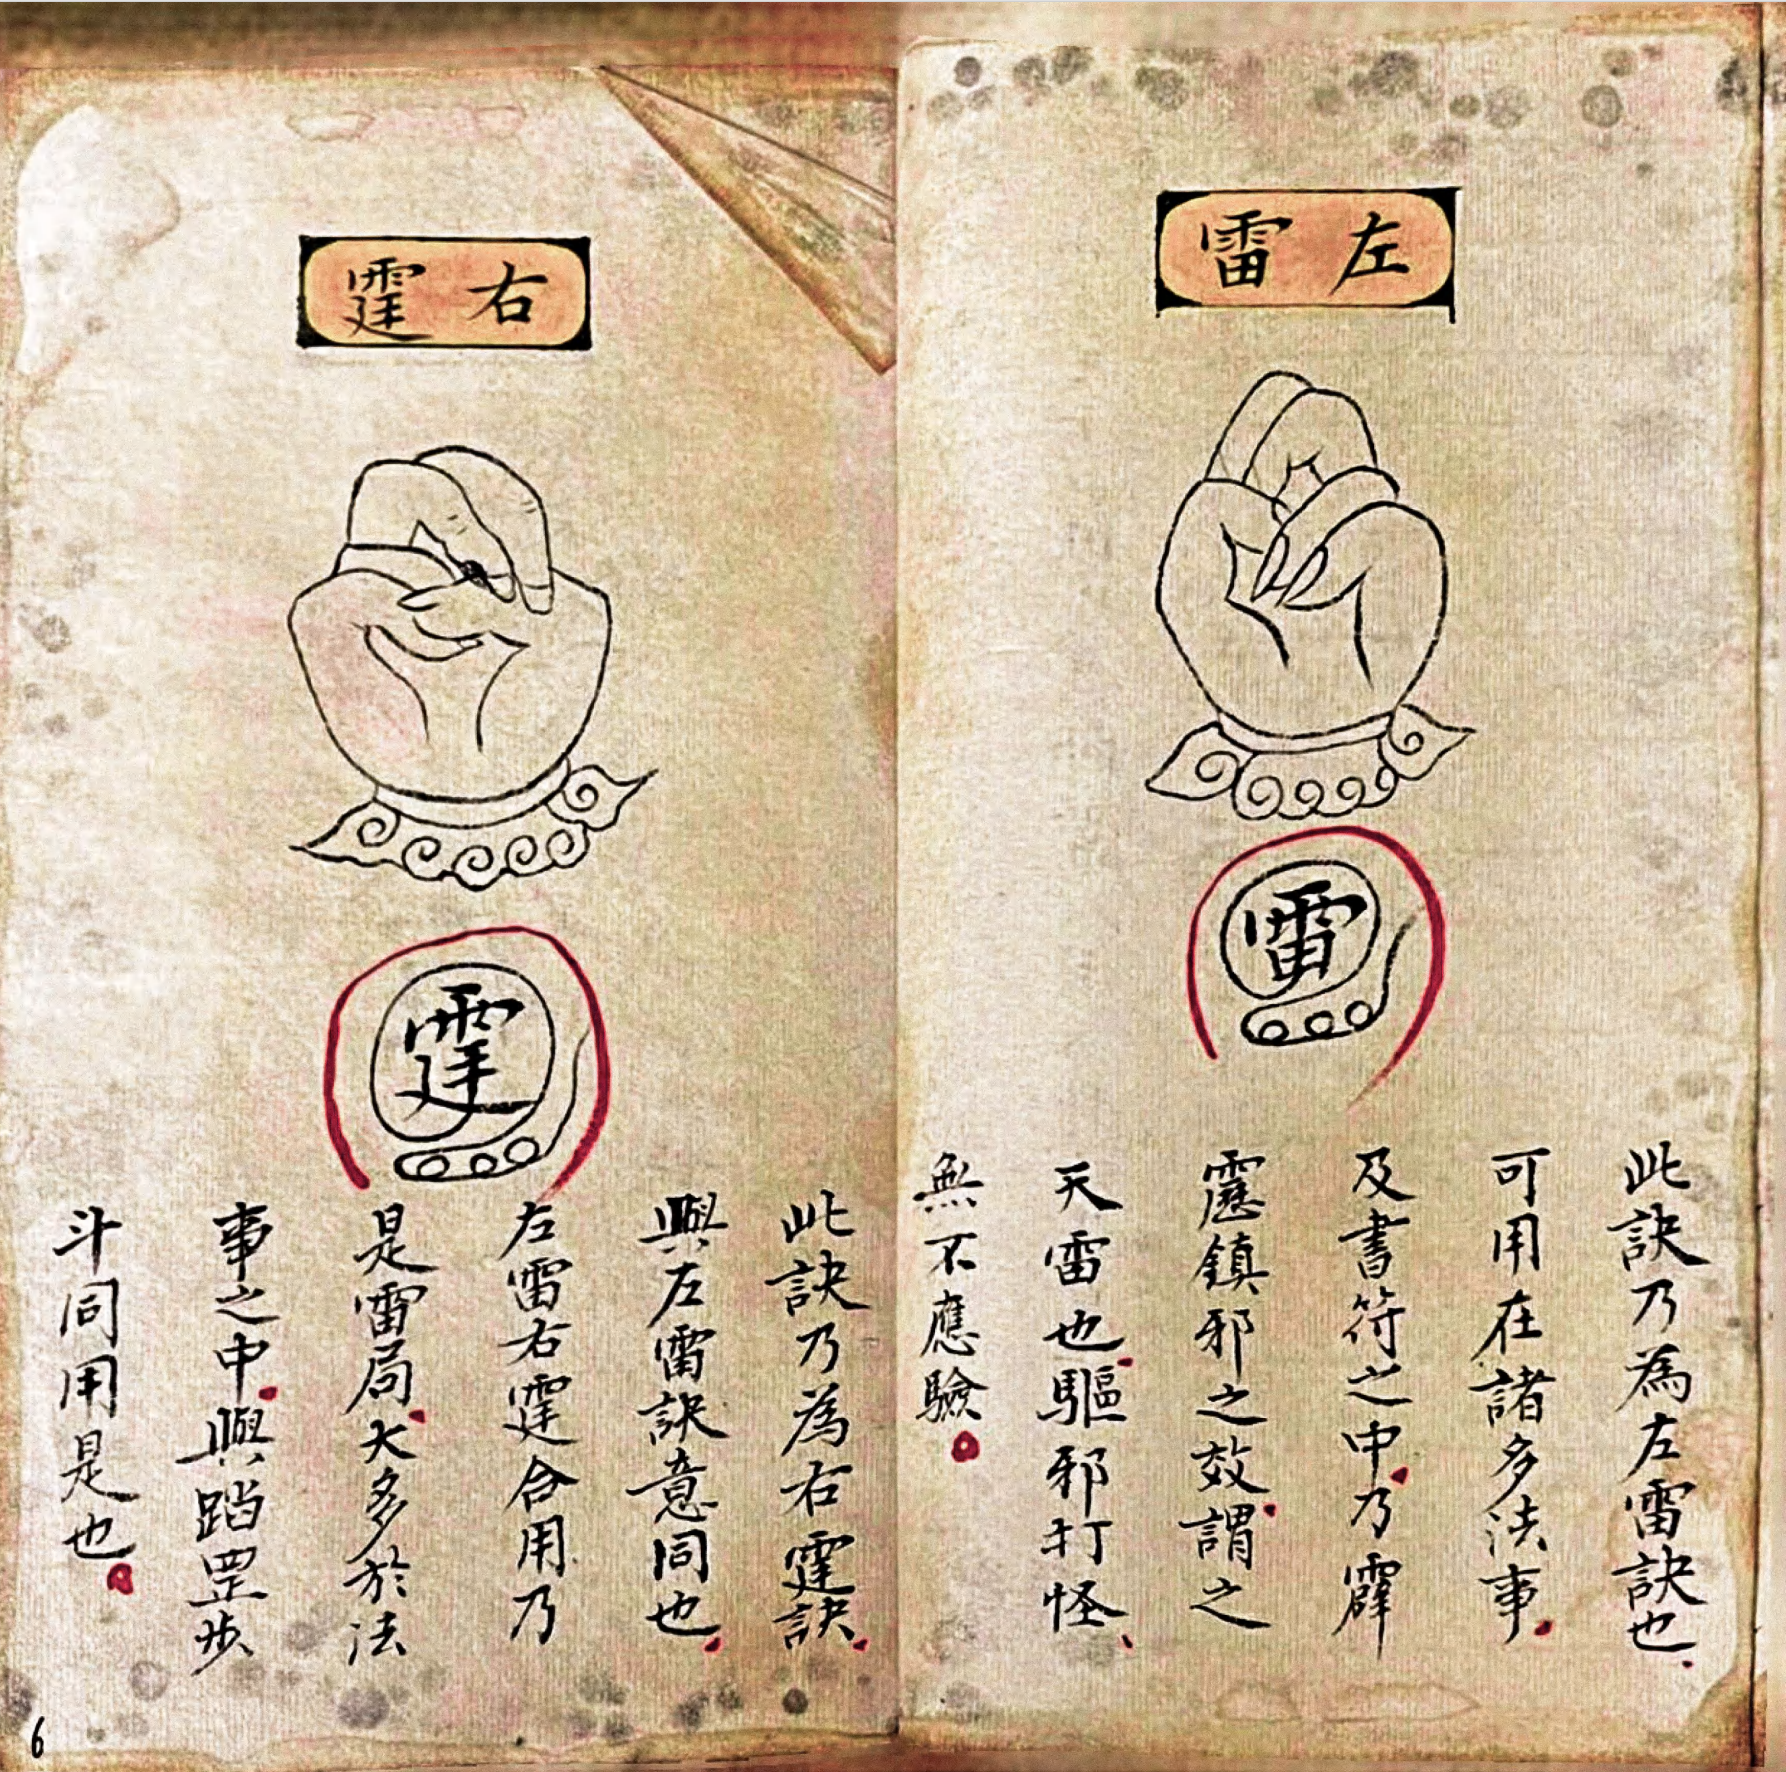 左雷
雷
此訣乃為左雷訣也
可用在諸多法事
及書符之中乃霹
靂鎮邪之效謂之
天雷也驅邪打怪
無不應驗
右霆
霆
此訣乃為右霆訣
與左雷訣意同也
左雷右霆合用乃
是雷局大多於法
事之中與踏罡步
斗同用是也
6